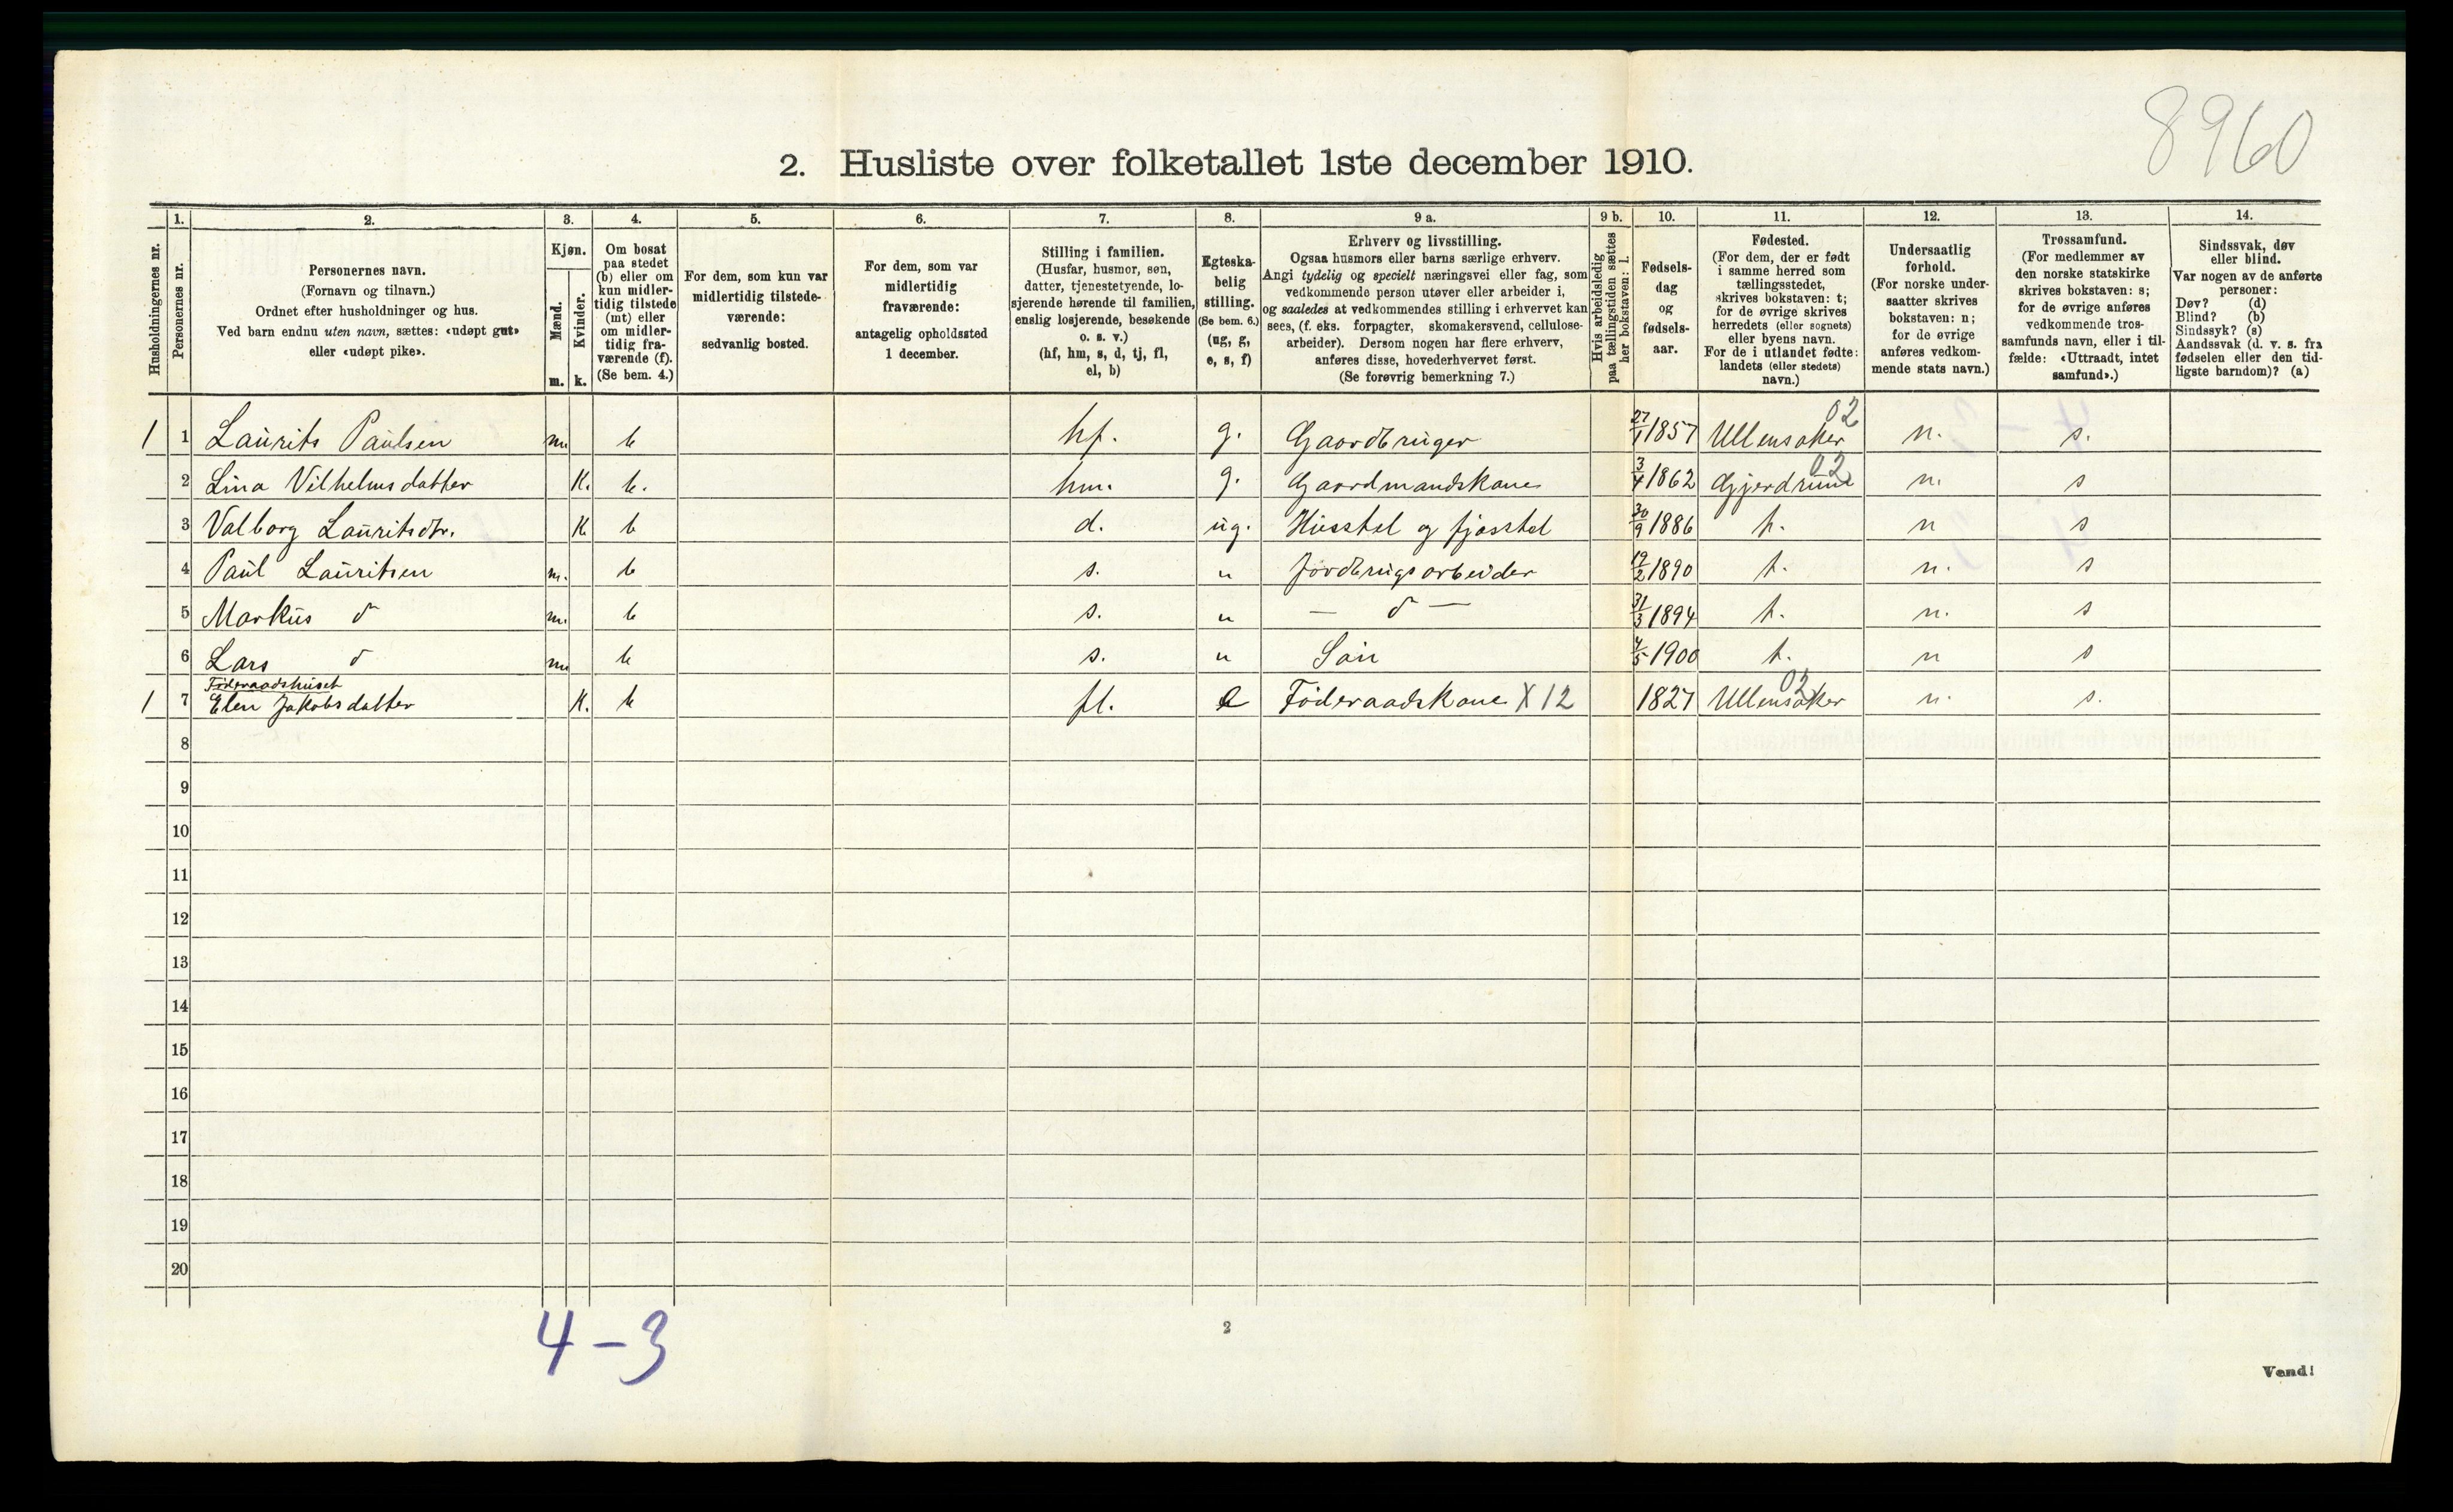 8960
2. Husliste over folketallet 1ste december 1910.
Husholdningernes nr.
1.
Personernes nr.
2.
Personernes navn.
(Fornavn og tilnavn.)
Ordnet efter husholdninger og hus.
Ved barn endnu uten navn, sættes: «udøpt gut»
eller «udøpt pike».
3.
Kjøn.
Mænd.
Kvinder.
m. k.
4.
Om bosat
paa stedet
(b) eller om
kun midler-
tidig tilstede
(mt) eller
om midler-
tidig fra-
værende (f).
(Se bem. 4.)
5.
For dem, som kun var
midlertidig tilstede-
værende:
sedvanlig bosted.
6.
For dem, som var
midlertidig
fraværende:
antagelig opholdssted
1 december.
7.
Stilling i familien.
(Husfar, husmor, søn,
datter, tjenestetyende, lo-
sjerende hørende til familien,
enslig losjerende, besøkende
o. s. v.)
(hf, hm, s, d, tj, fl,
el, b)
8.
Egteska-
belig
stilling.
(Se bem. 6.)
(ug, g,
e, s, f)
9 a.
Erhverv og livsstilling.
Ogsaa husmors eller barns særlige erhverv.
Angi tydelig og specielt næringsvei eller fag, som
vedkommende person utøver eller arbeider i,
og saaledes at vedkommendes stilling i erhvervet kan
sees, (f. eks. forpagter, skomakersvend, cellulose-
arbeider). Dersom nogen har flere erhverv,
anføres disse, hovederhvervet først.
(Se forøvrig bemerkning 7.)
9 b.
Hvis arbeidsledig
paa tællingstiden sættes
her bokstaven: l.
10.
Fødsels-
dag
og
fødsels-
aar.
11.
Fødested.
(For dem, der er født
i samme herred som
tællingsstedet,
skrives bokstaven: t;
for de øvrige skrives
herredets (eller sognets)
eller byens navn.
For de i utlandet fødte:
landets (eller stedets)
navn.)
12.
Undersaatlig
forhold.
(For norske under-
saatter skrives
bokstaven: n;
for de øvrige
anføres vedkom-
mende stats navn.)
13.
Trossamfund.
(For medlemmer av
den norske statskirke
skrives bokstaven: s;
for de øvrige anføres
vedkommende tros-
samfunds navn, eller i til-
fælde: «Uttraadt, intet
samfund».)
14.
Sindssvak, døv
eller blind.
Var nogen av de anførte
personer:
Døv? (d)
Blind? (b)
Sindssyk? (s)
Aandssvak (d. v. s. fra
fødselen eller den tid-
ligste barndom)? (a)
1 1 Laurits Paulsen m. b hf. g. Gaardbruger 27/1 1857 Ullensaker 02 n. s.
2 Lina Vilhelmsdatter K. b. hm. g. Gaardmandskone 3/4 1862 Gjerdrum 02 n. s
3 Valborg Lauritsdtr. K b d. ug. Husstel og fjøsstel 30/9 1886 t. n s
4 Paul Lauritsen m. b s. " Jordbrugsarbeider 19/2 1890 t. n. s
5 Markus do m. b s. " — do — 31/3 1894 t. n. s
6 Lars do m b s. " Søn 4/5 1900 t. n s
Föderaadshuset
1 7 Elen Jakobsdatter K. b fl. e Föderaadskone X 12 1827 Ullensaker 02 n. s.
8
9
10
11
12
13
14
15
16
17
18
19
20
4 – 3
2
Vend!